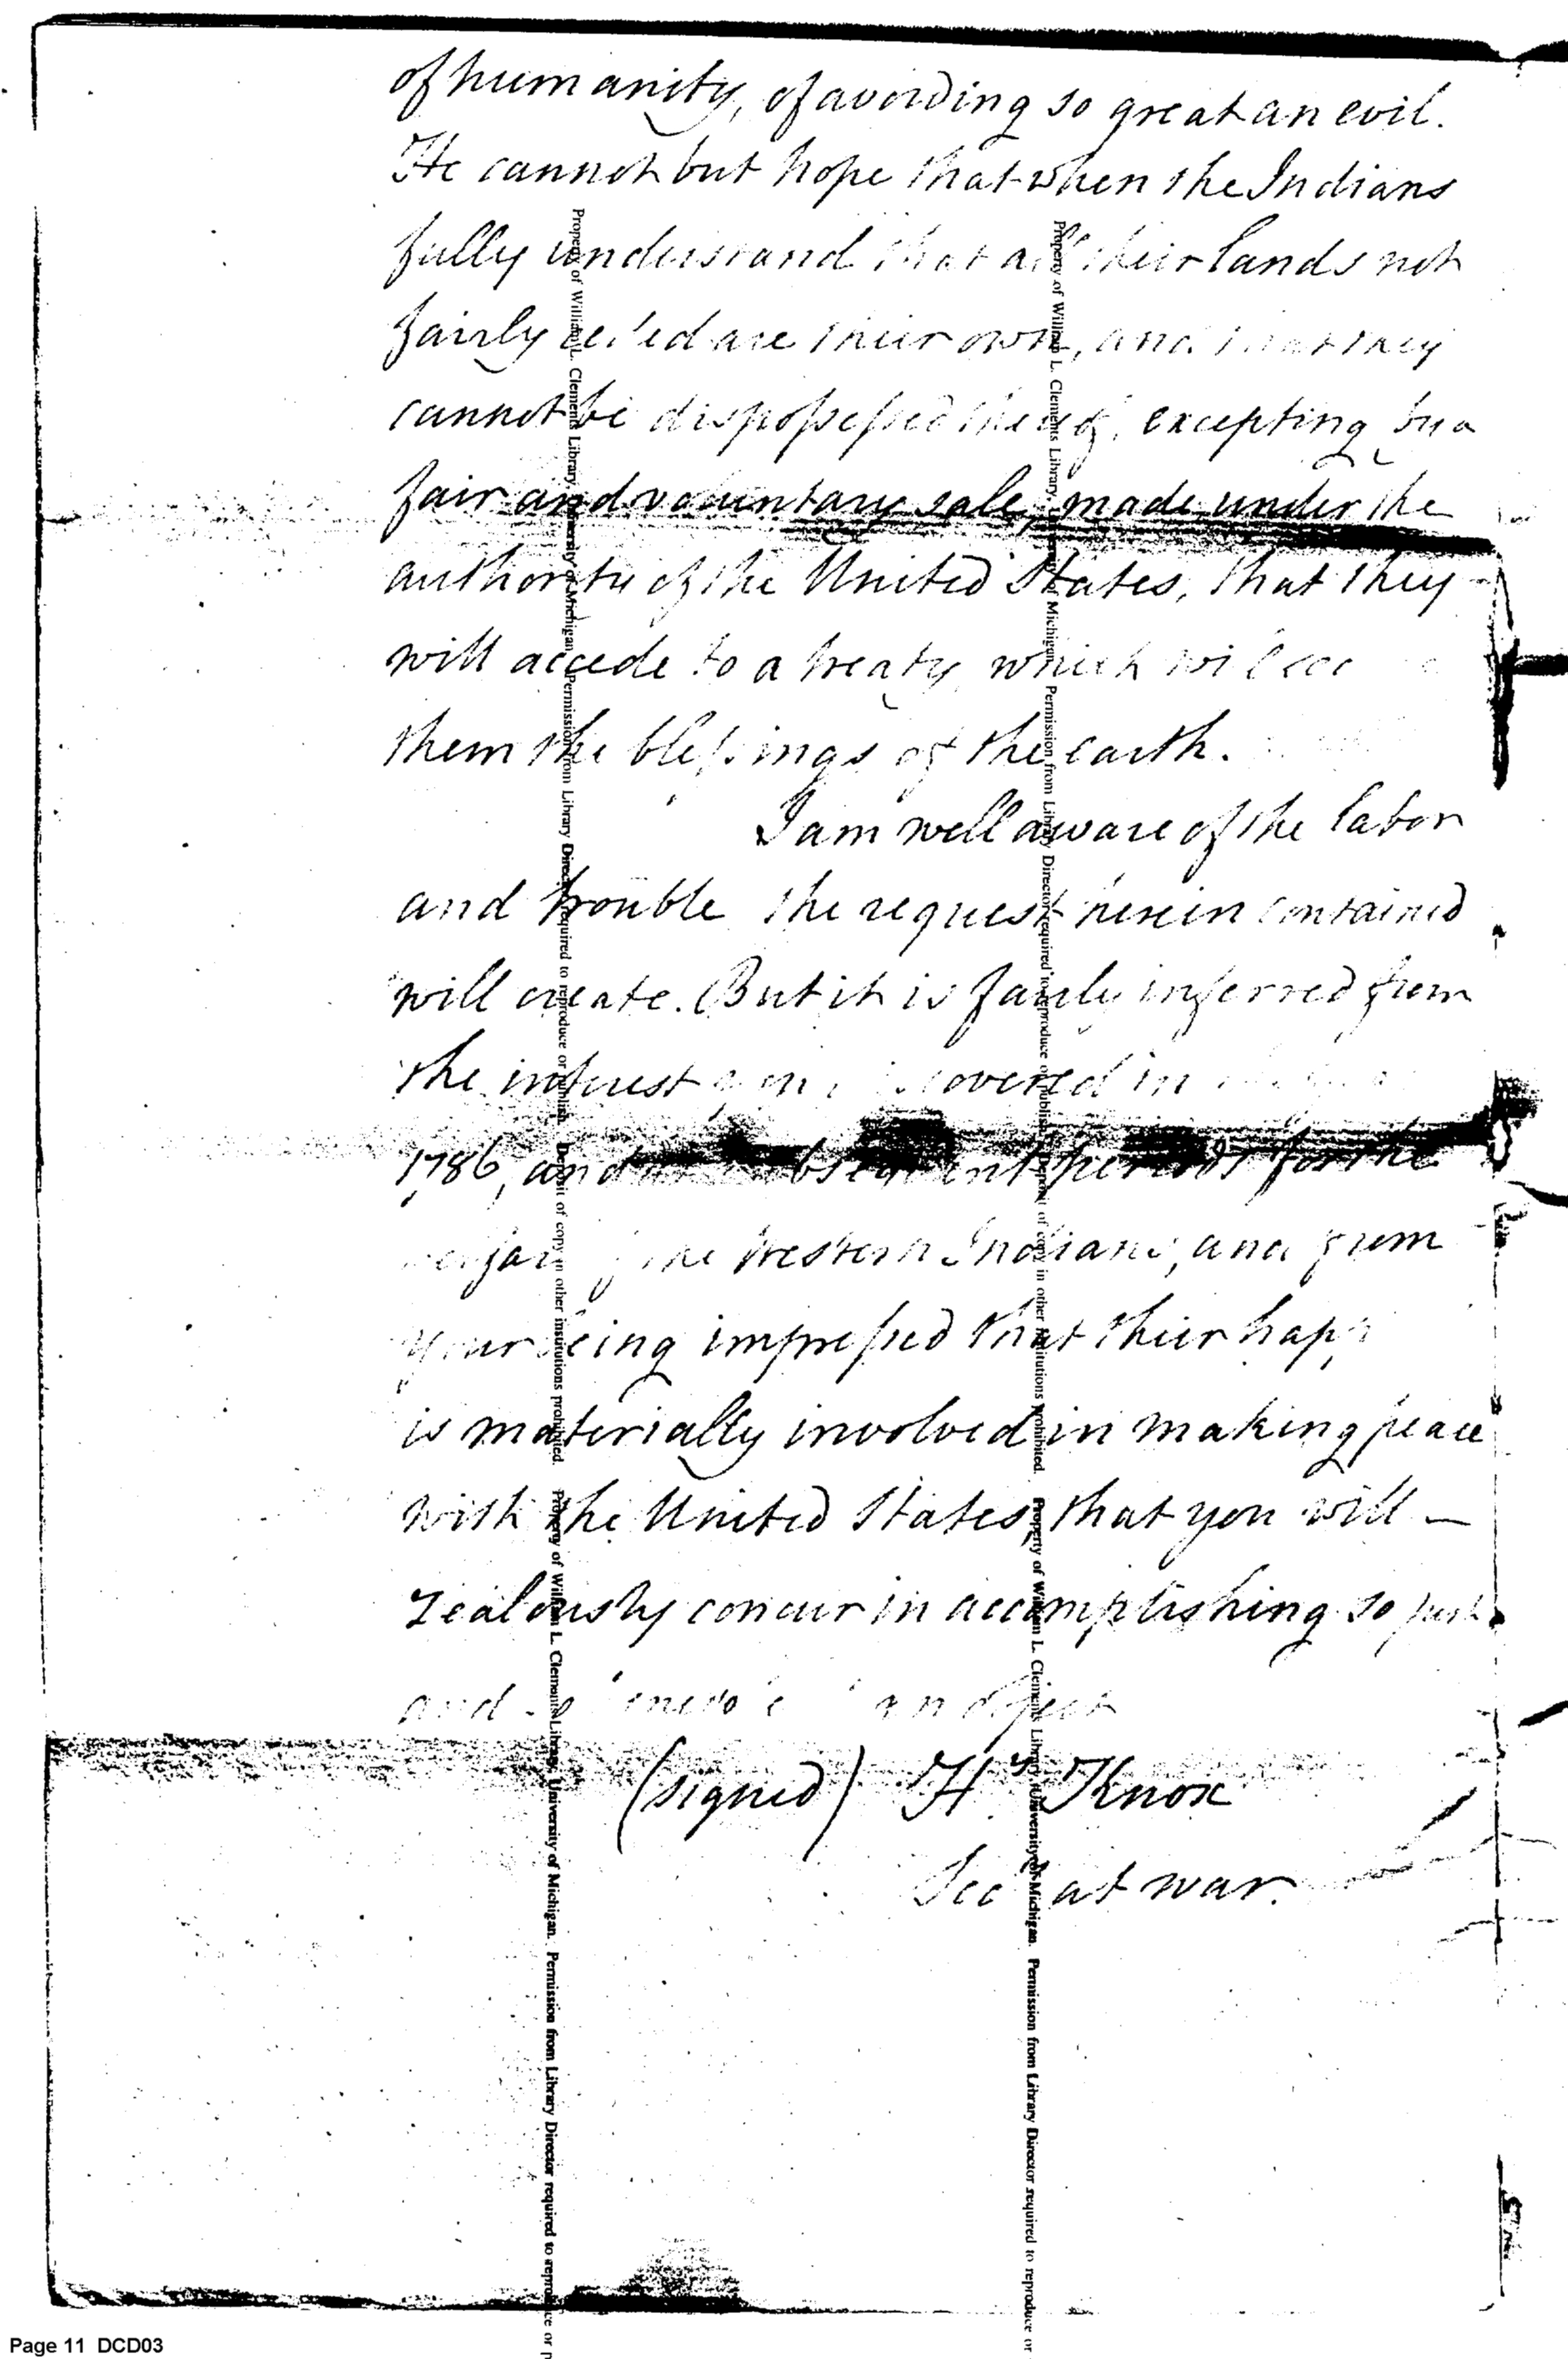 of humanity, of avoiding so great an evil.
He cannot but hope that when the Indians
fully understand that all their lands not
fairly ceded are their own, and that they
cannot be dispossessed thereof, excepting by a
fair and voluntary sale, made under the
authority of the United States, that they
will accede to a treaty which will
them the blessings of the earth.
I am well aware of the labor
and trouble the request herein contained
will create. But it is fairly inferred from
the interest you discovered in
1786, and subsequent periods for the
the Western Indians, and from
your being impressed that their
is materially involved in making peace
with the United States, that you will —
zealously concur in accomplishing so just
and so an object
(signed) Hy Knox
Sec at war.
Property of William L. Clements Library, University of Michigan. Permission from Library Director required to reproduce or publish. Deposit of copy in other institutions prohibited. Property of William L. Clements Library, University of Michigan. Permission from Library Director required to reproduce or p
Property of William L. Clements Library, University of Michigan. Permission from Library Director required to reproduce or publish. Deposit of copy in other institutions prohibited. Property of William L. Clements Library, University of Michigan. Permission from Library Director required to reproduce or
Page 11 DCD03